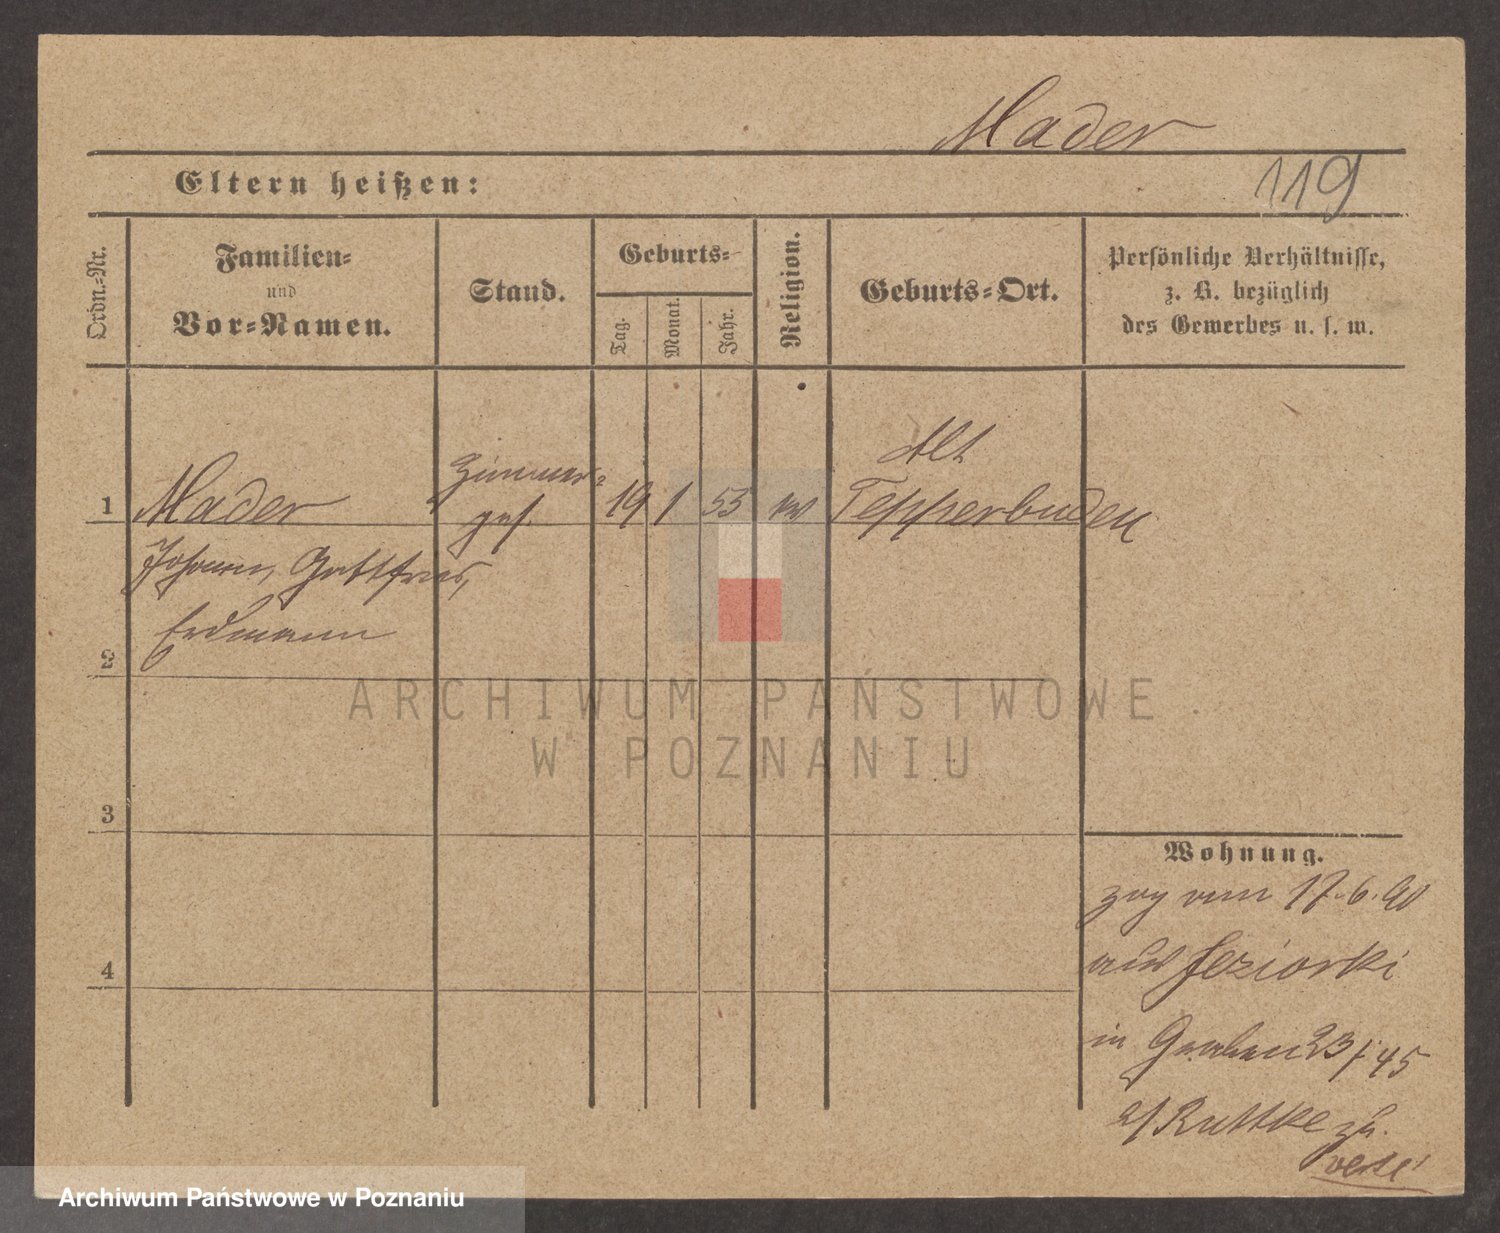 Mader
119
Eltern heißen:
Ordn.-Nr.
Familien-
und
Vor-Namen.
Stand.
Geburts-
Tag.
Monat.
Jahr.
Religion.
Geburts-Ort.
Persönliche Verhältnisse,
z. B. bezüglich
des Gewerbes u. s. w.
1
Mader
Johann, Gottfried,
Erdmann
Zimmer-
ges.
19 1 53
Alt
Tepperbuden
2
3
4
Wohnung.
zog am 17.6.90
aus Jeziorki
in Graben 23/45
b/ Ruttke zu.
ARCHIWUM PAŃSTWOWE
W POZNANIU
Archiwum Państwowe w Poznaniu